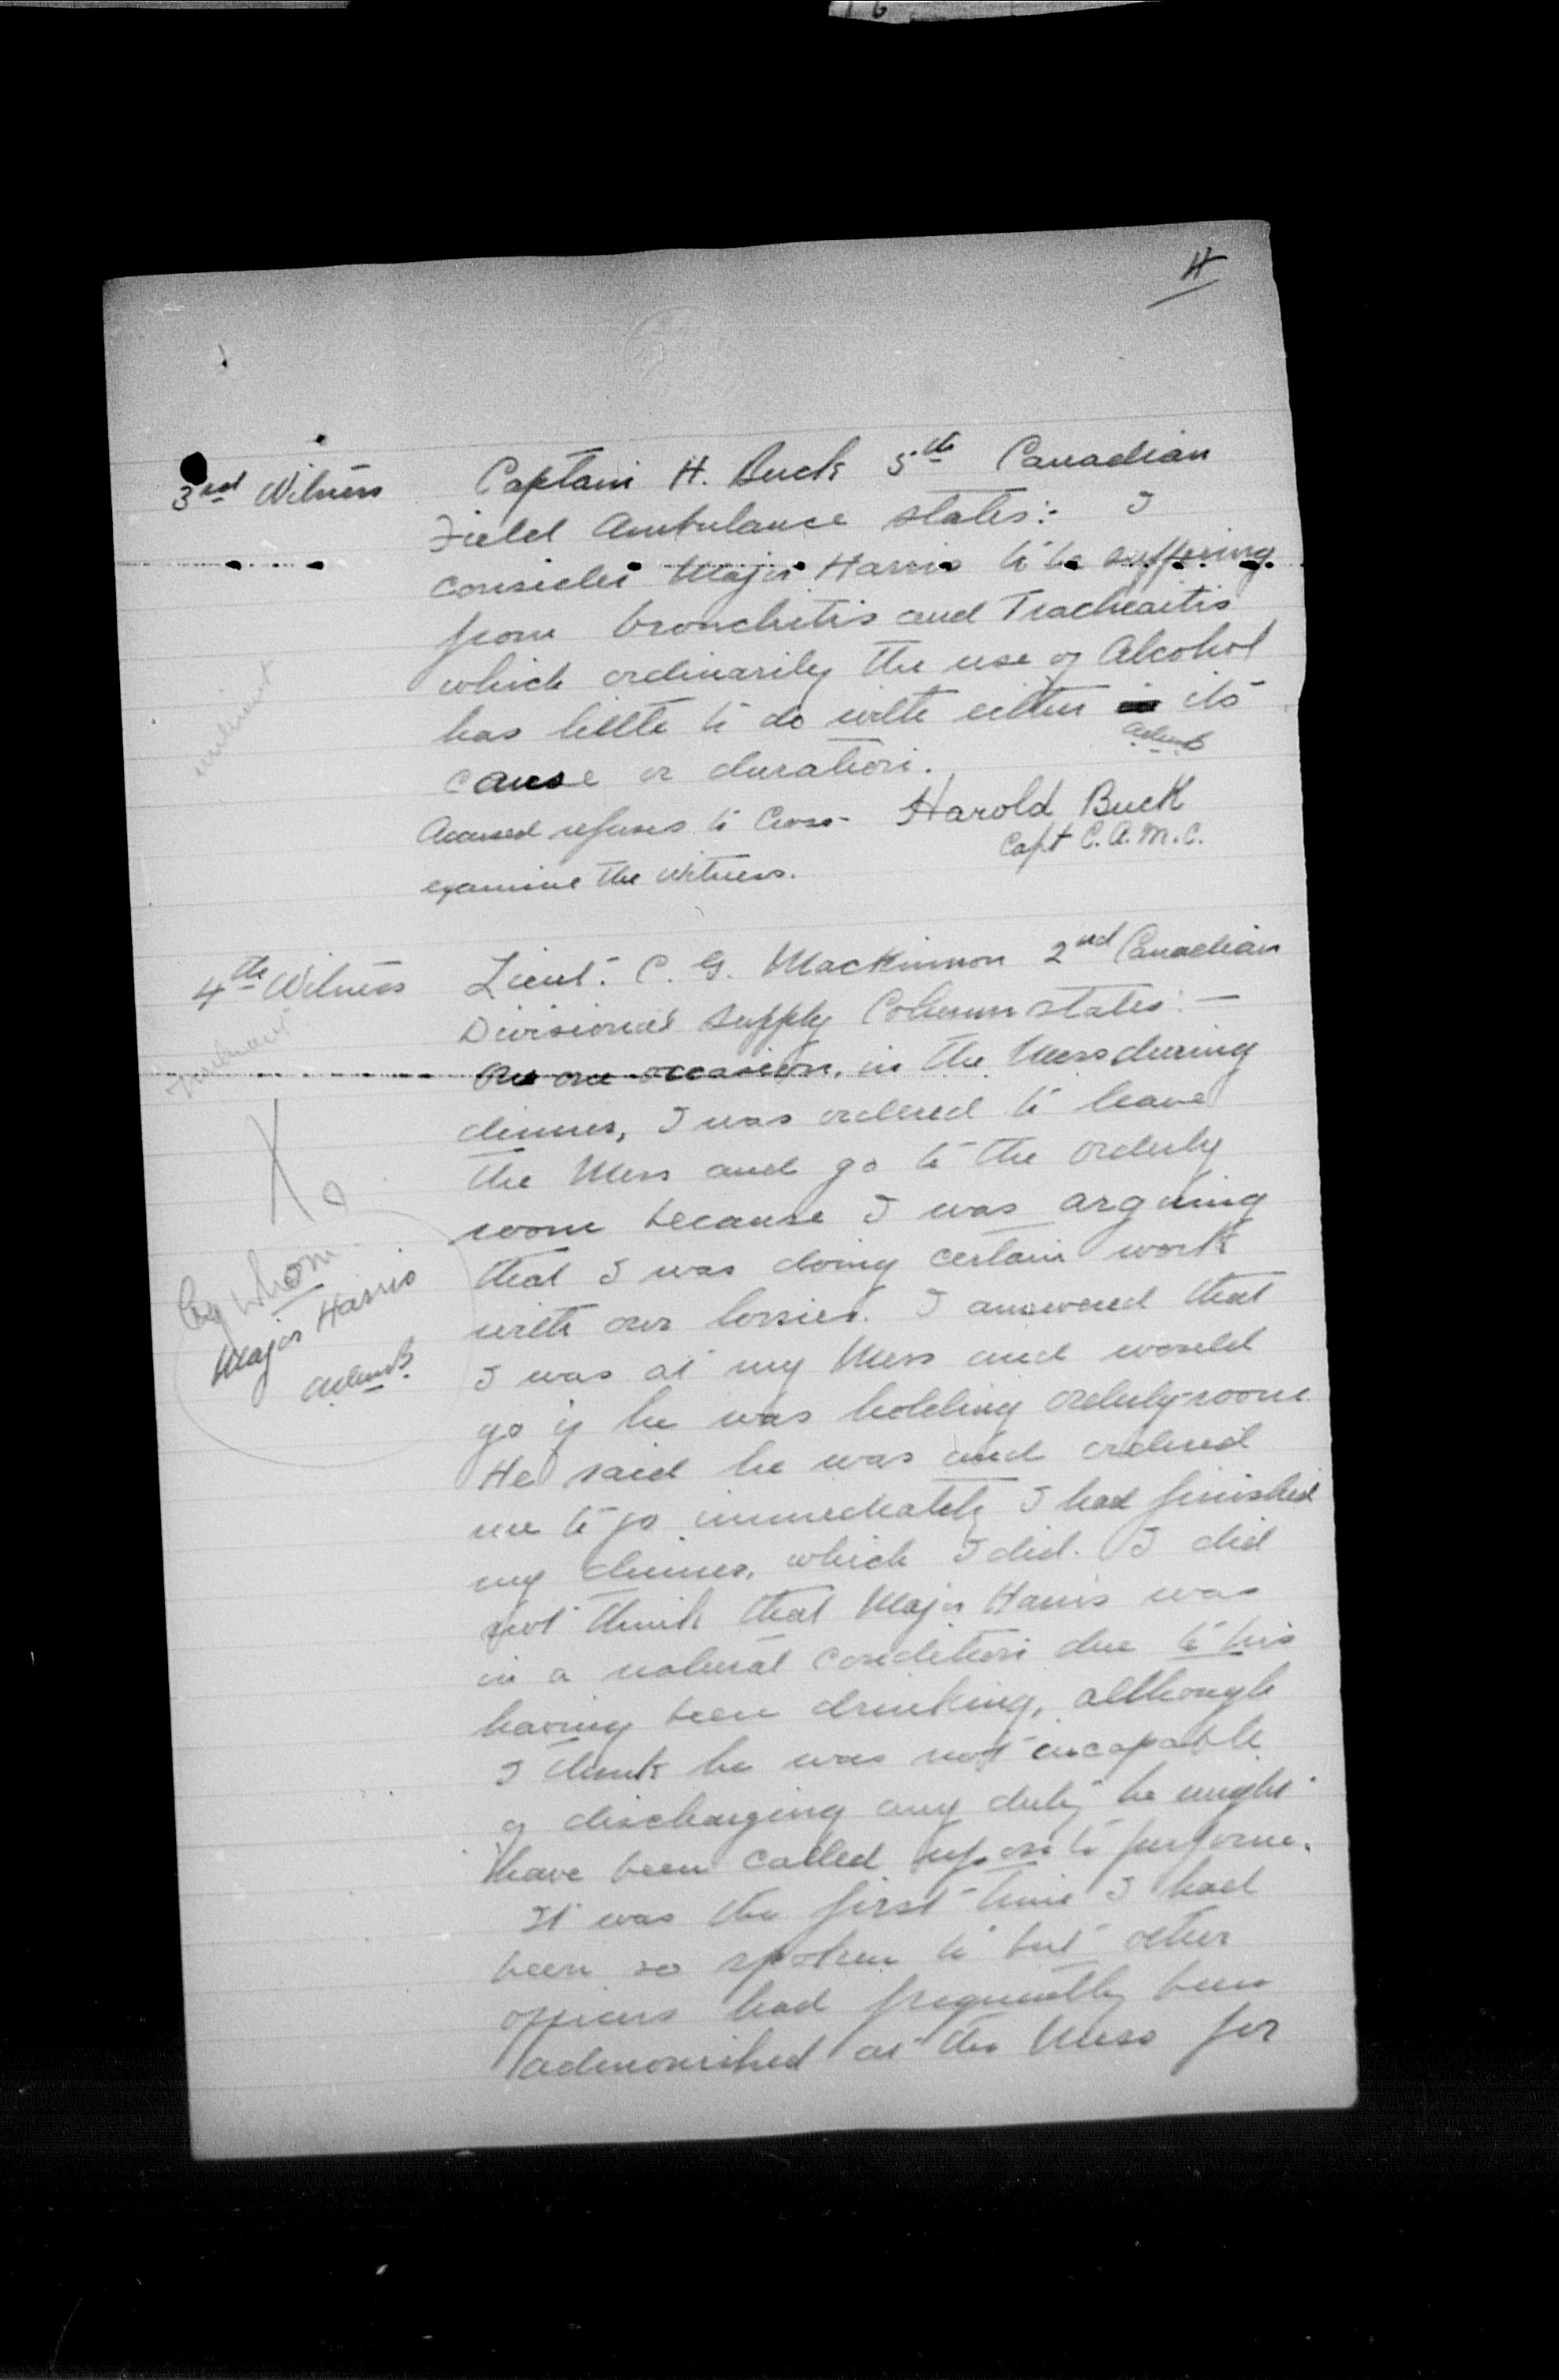 4
3rd Witness Captain H. Buck 5th Canadian
Field Ambulance states:- I
consider Major Harris to be suffering
from bronchitis and Tracheaitis
which ordinarily the use of Alcohol
has little to do with either its
cause or duration.
Accused refuses to Cross-
examine the witness.
Harold Buck
Capt C.A.M.C.
4th Witness Lieut. C. G. MacKinnon 2nd Canadian
Divisional Supply Column states:-
On one occasion, in the Mess during
dinner, I was ordered to leave
the Mess and go to the orderly
room because I was arguing
that I was doing certain work
with our lorries. I answered that
I was at my Mess and would
go if he was holding orderly-room.
He said he was and ordered
me to go immediately I had finished
my dinner, which I did. I did
not think that Major Harris was
in a natural condition due to his
having been drinking, although
I think he was not incapable
of discharging any duty he might
have been called upon to perform.
It was the first time I had
been so spoken to but other
officers had frequently been
admonished at the Mess for
X
By whom
Major Harris